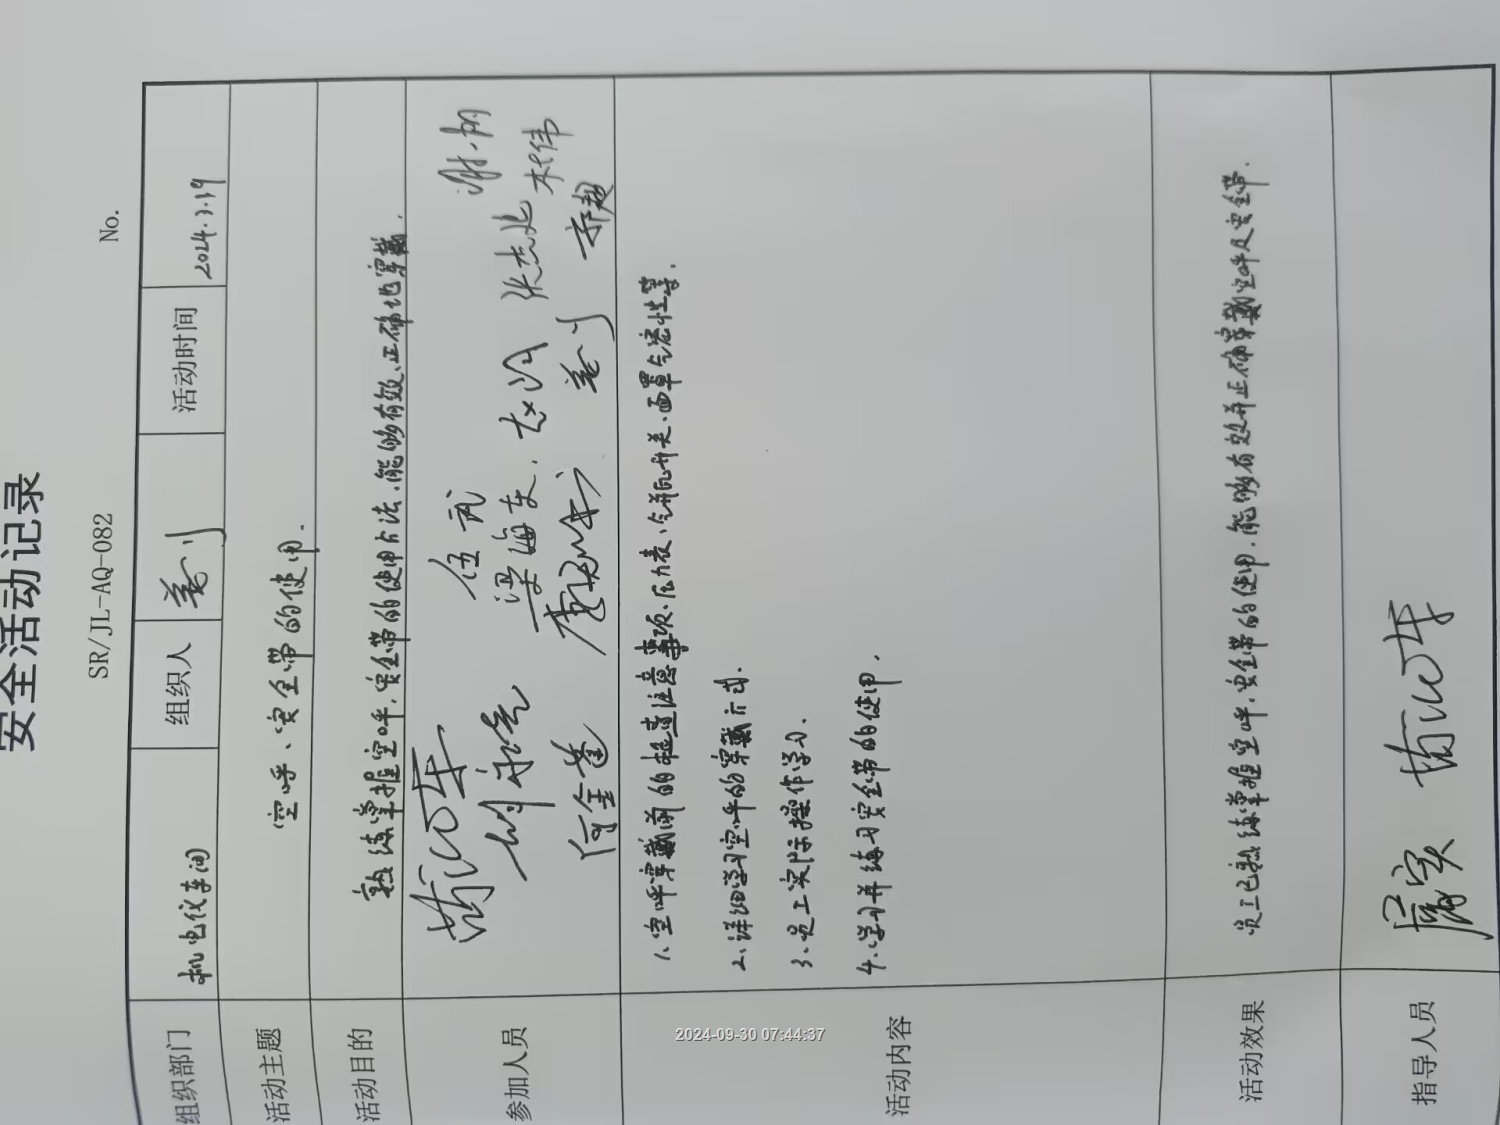 安全活动记录
SR/JL-AQ-082 No.
组织部门 机电仪车间 组织人 活动时间 2024.
活动主题 空呼、安全带的使用.
活动目的 熟练掌握空呼,安全带的使用方法,能够有效、正确地穿戴.
参加人员
伍武
梁海东. 张志达
何金蓬 乔超
活动内容
1、空呼穿戴前的检查注意事项、压力表、气瓶开关、面罩气密性等.
2、详细学习空呼的穿戴方式.
3、员工实际操作学习.
4、学习并练习安全带的使用.
活动效果 员工已熟练掌握空呼,安全带的使用,能够有效并正确穿戴空呼及安全带.
指导人员
2024-09-30 07:44:37